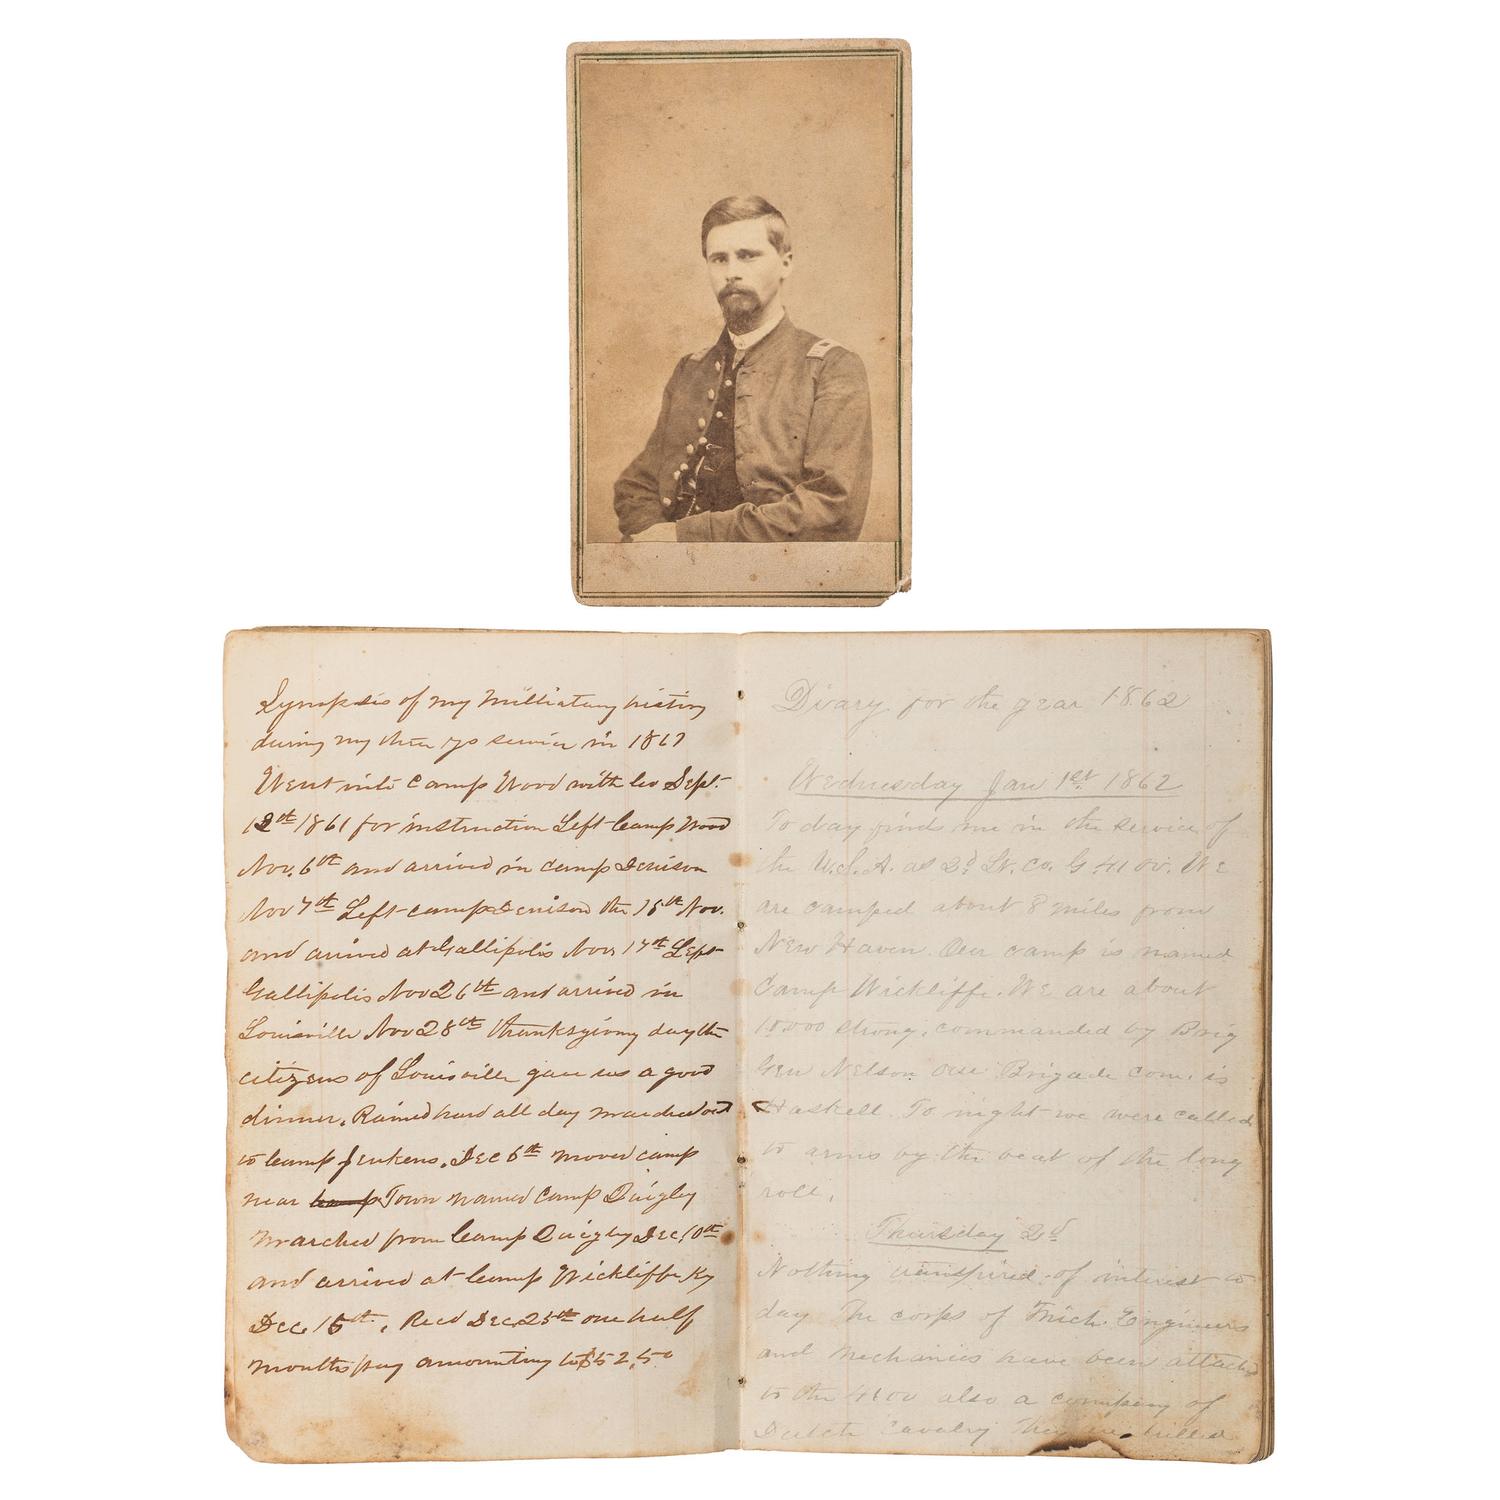 Synopsis of my Milliatary histiry
during my three yr's service in 1861
Went into Camp Wood with Co Sept.
12th 1861 for instruction Left Camp Wood
Nov. 6th and arrived in camp Denison
Nov 7th Left camp Denison the 15th Nov.
and arrived at Gallipolis Nov. 17th Left
Gallipolis Nov 26th and arrived in
Louisville Nov 28th thanksgiviny day the
citizens of Louisville gave us a good
dinner. Rained hard all day marched out
to Camp Jenkens. Dec 6th moved camp
near Camp Town named Camp Quigley
Marched from Camp Quigley Dec. 10th
and arrived at Camp Wickliffe Ky
Dec. 15th. Recd Dec. 25th one half
months pay amounting to $52,50
Diary for the year 1862
Wednesday Jan 1st 1862
To day finds me in the service of
the U.S.A. as 2d Lt. Co. G. 41 O.V. We
are camped about 8 miles from
New Haven. Our camp is named
Camp Wickliffe. We are about
10000 strong, commanded by Brig
Gen Nelson Our Brigade com. is
Haskell. To night we were called
to arms by the beat of the long
roll.
Thursday 2d
Nothing transpired of interest to
day The corps of Mich. Engineers
and Mechanics have been attached
to the 41 OV also a company of
Dutch Cavalry They are billed